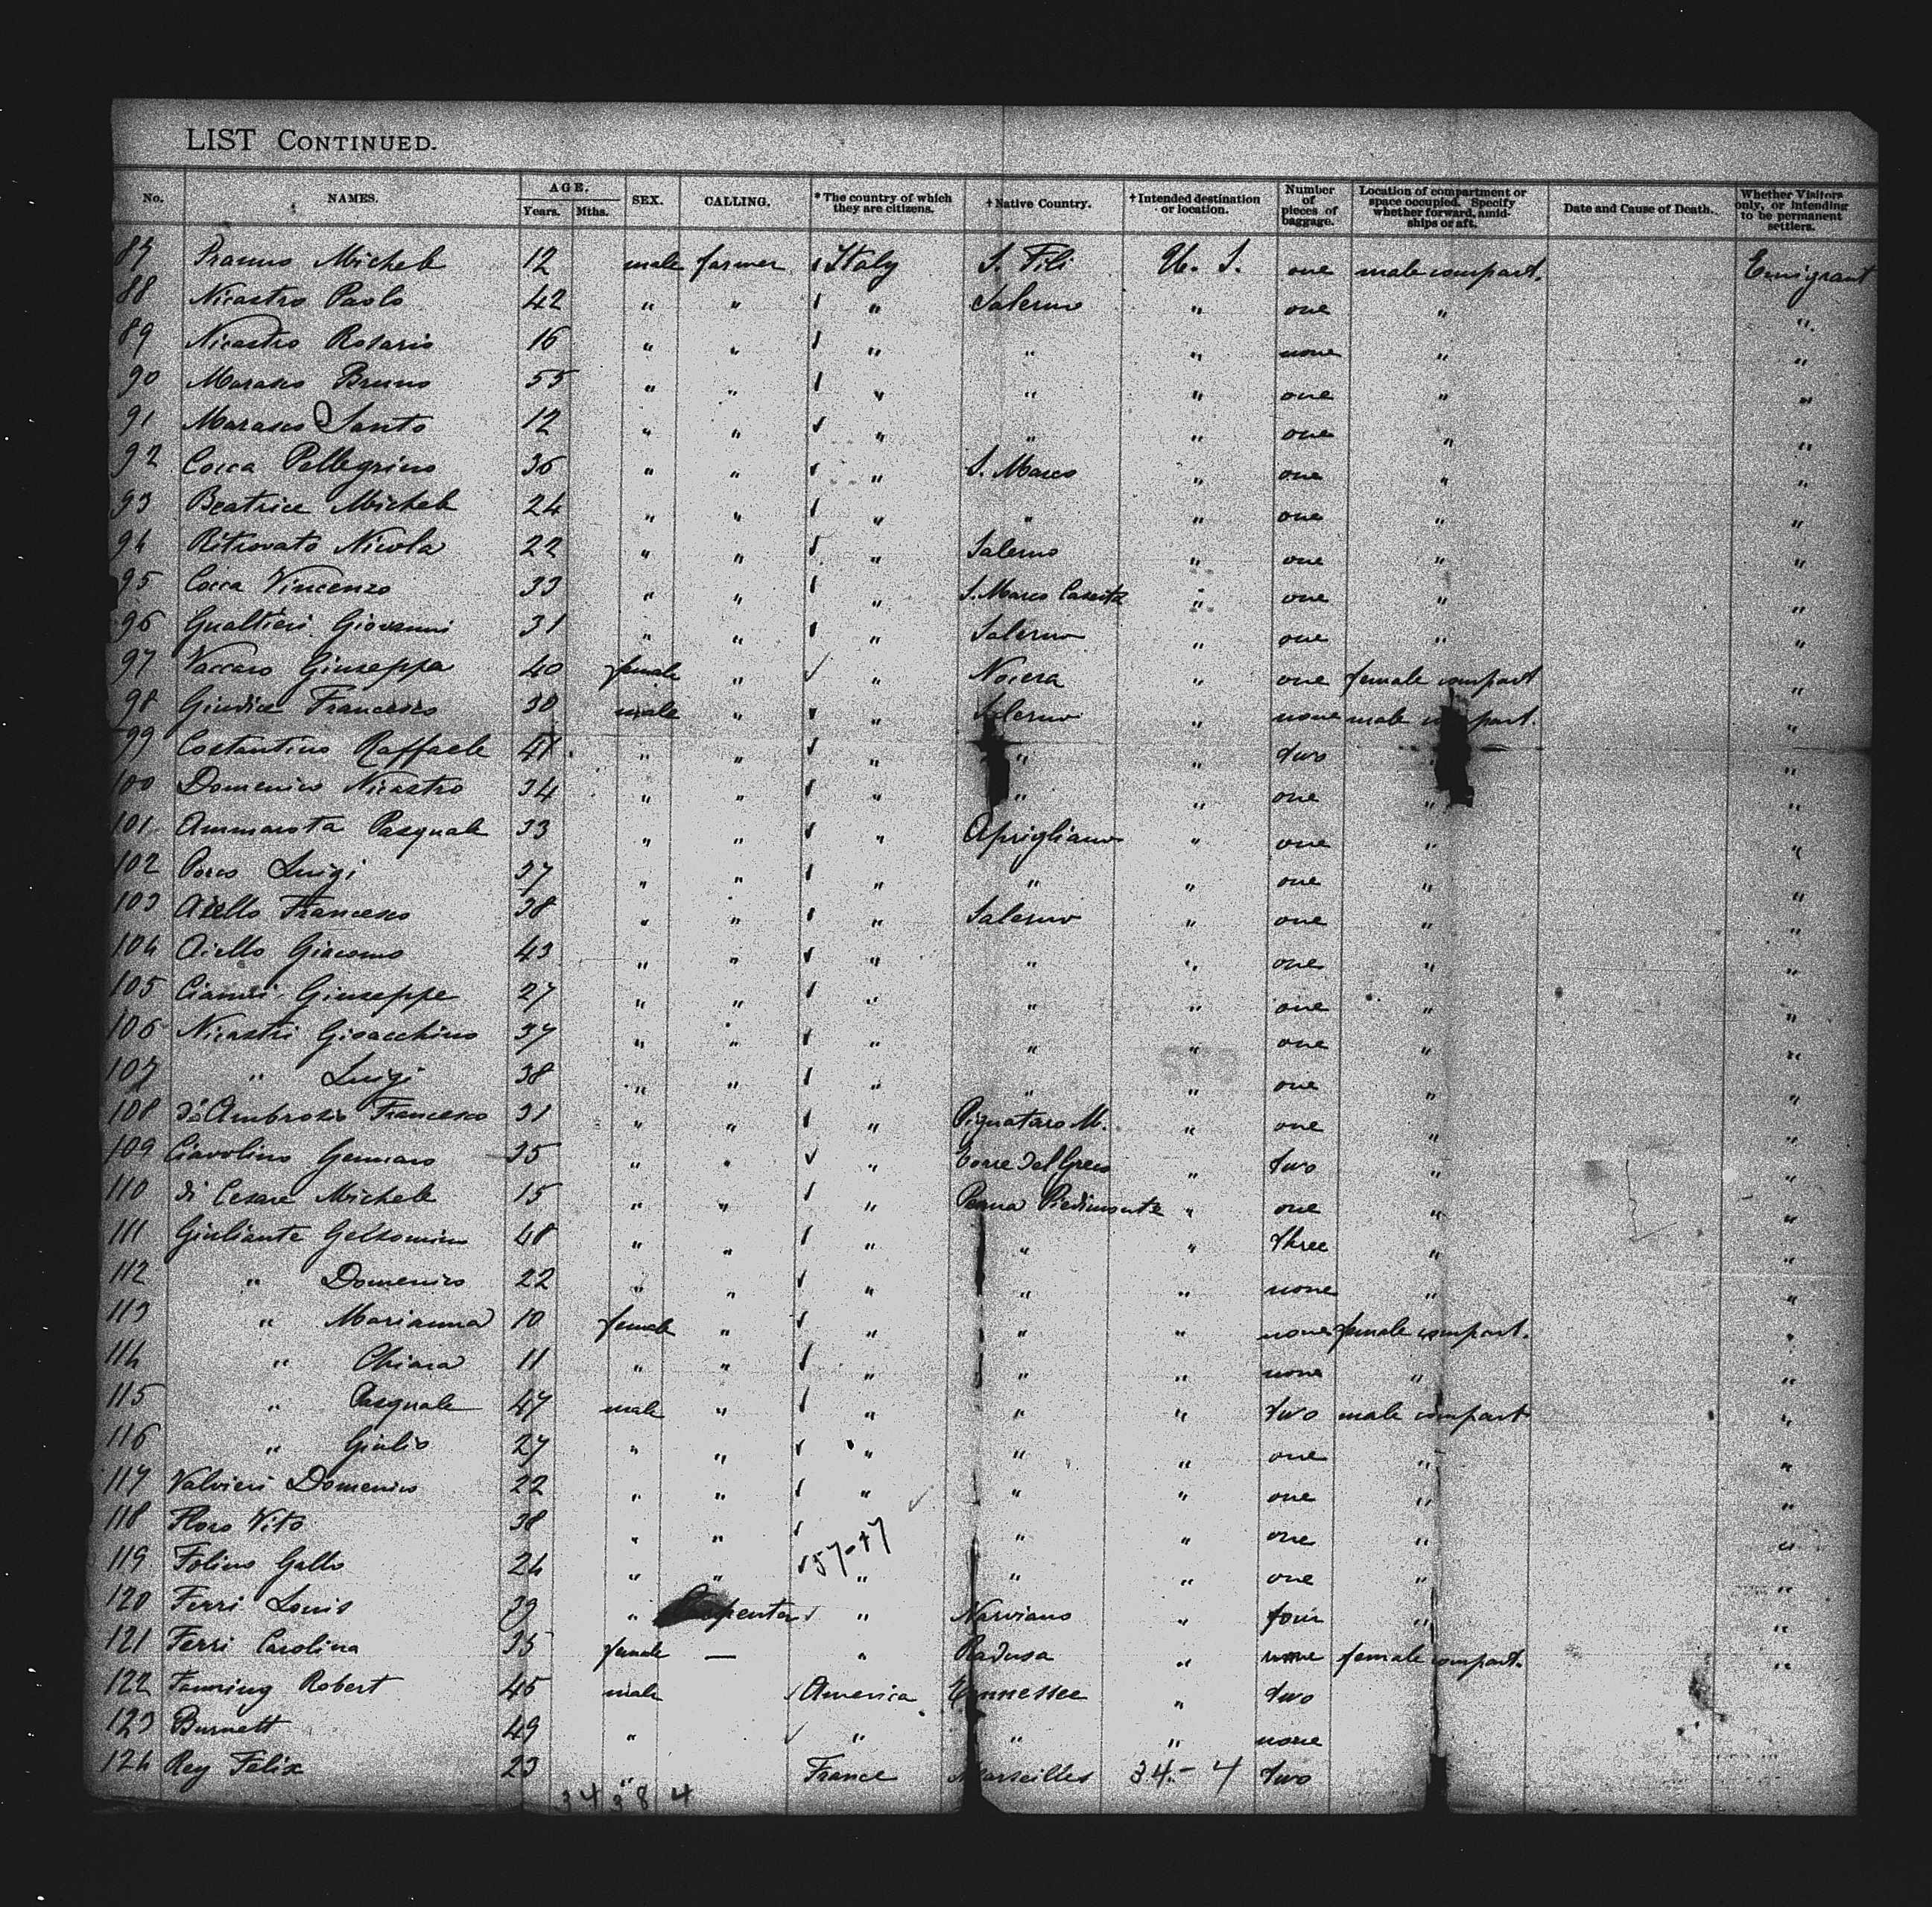 LIST CONTINUED.
No. NAMES. AGE. Years. Mths. SEX. CALLING. * The country of which they are citizens. † Native Country. † Intended destination or location. Number of pieces of baggage. Location of compartment or space occupied. Specify whether forward, amidships or aft. Date and Cause of Death. Whether Visitors only, or intending to be permanent settlers.
87 Michele 12 male farmer Italy S. Fili U. S. one male compart. Emigrant
88 Nicastro Paolo 42 " " " Salerno " one " "
89 Nicastro Rosario 16 " " " " " none " "
90 Marasco Bruno 55 " " " " " one " "
91 Marasco Santo 12 " " " " " one " "
92 Cocca Pellegrino 36 " " " S. Marco " one " "
93 Beatrice Michele 24 " " " " " one " "
94 Ritrovato Nicola 22 " " " Salerno " one " "
95 Cocca Vincenzo 33 " " " S. Marco Caserta " one " "
96 Gualtieri Giovanni 31 " " " Salerno " one " "
97 Vaccaro Giuseppa 40 female " " Nocera " one female compart "
98 Giudice Francesco 30 male " " Salerno " none male compart. "
99 Costantino Raffaele 41 " " " " " two " "
100 Domenico Nicastro 34 " " " " " one " "
101 Ammarota Pasquale 33 " " " Aprigliano " one " "
102 Porco Luigi 37 " " " " " one " "
103 Aiello Francesco 38 " " " Salerno " one " "
104 Aiello Giacomo 43 " " " " " one " "
105 Giuseppe 27 " " " " " one " "
106 Nicastri Gioacchino 37 " " " " " one " "
107 " Luigi 38 " " " " " one " "
108 d'Ambrosio Francesco 31 " " " Pignataro M. " one " "
109 Ciavolino Gennaro 35 " " " Torre del Greco " two " "
110 di Cesare Michele 15 " " " Piedimonte " one " "
111 Giuliante Gelsomino 48 " " " " " three " "
112 " Domenico 22 " " " " " none " "
113 " Marianna 10 female " " " " none female compart. "
114 " Chiara 11 " " " " " none " "
115 " Pasquale 47 male " " " " two male compart "
116 " Giulio 27 " " " " " one " "
117 Valvieri Domenico 22 " " " " " one " "
118 Floro Vito 38 " " " " one " "
119 Folino Gallo 24 " " 57-47 " " " one " "
120 Ferri Louis 39 " Carpenter " " four " "
121 Ferri Carolina 35 female — " Radusa " none female compart. "
122 Fanning Robert 45 male America Tennessee " two
123 Burnett 49 " " " " none
124 Rey Felix 23 " France Marseilles 34-4 two
34 38 4